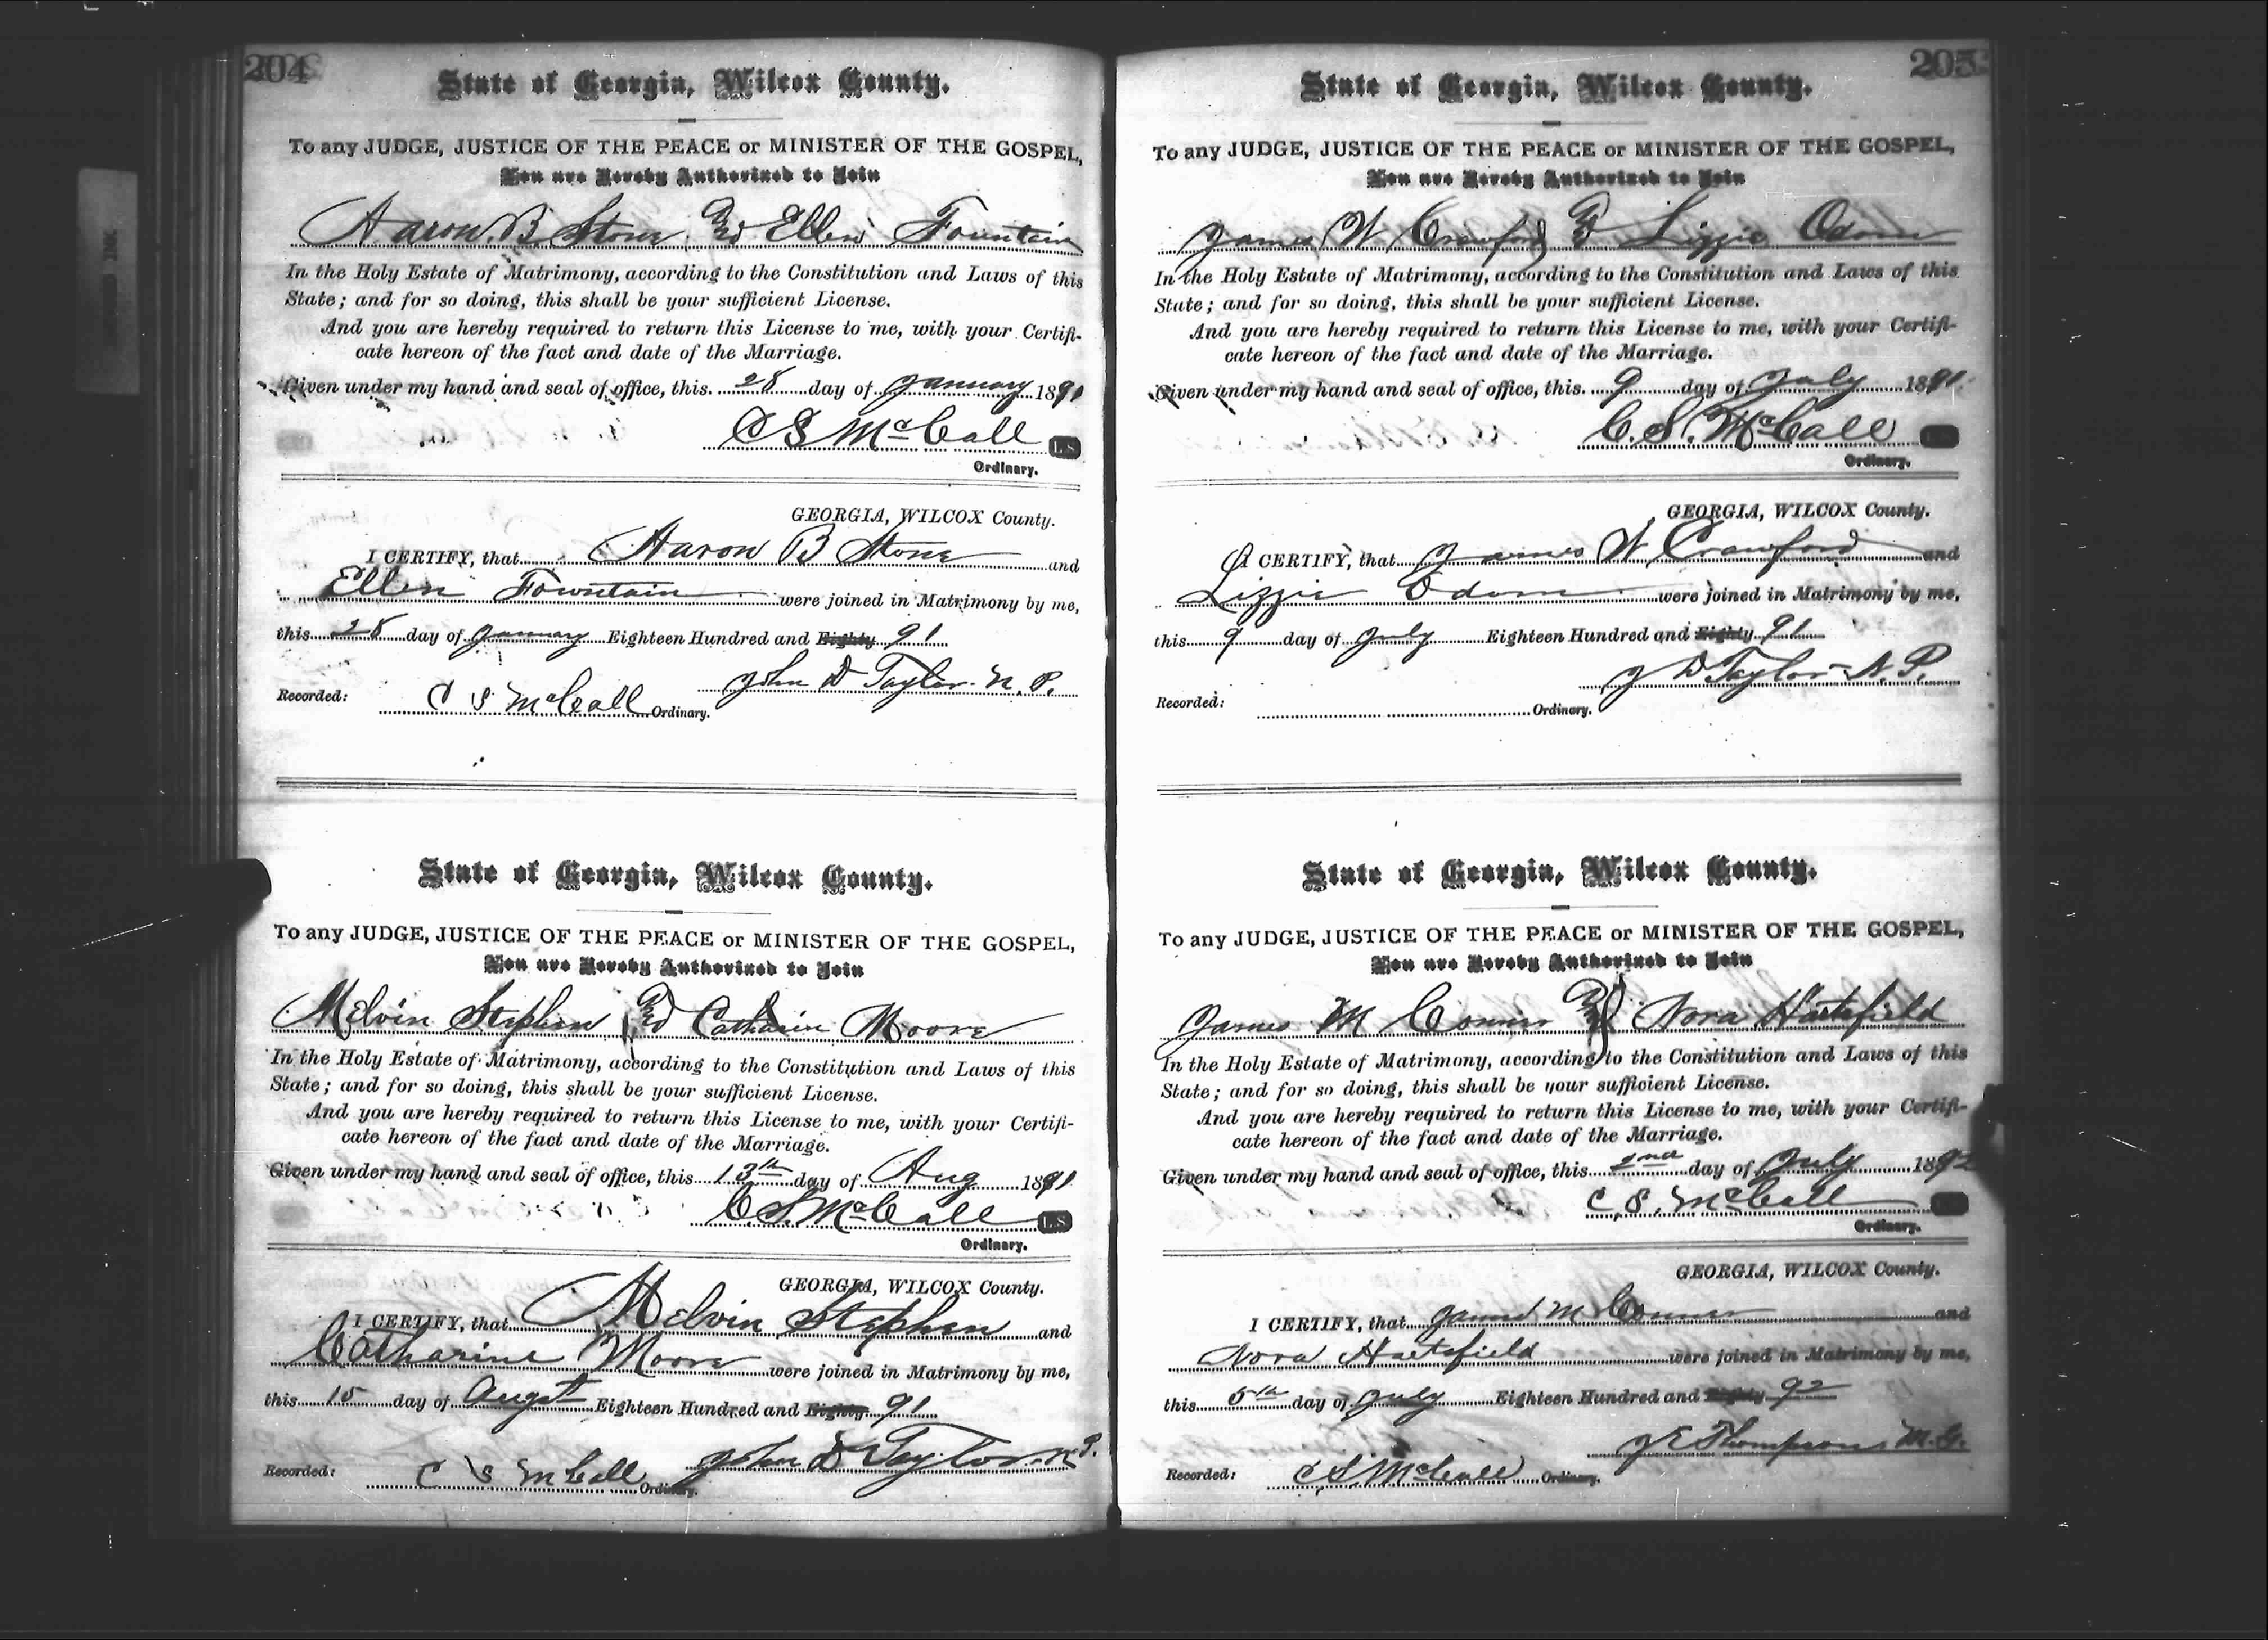 204
State of Georgia, Wilcox County.
To any JUDGE, JUSTICE OF THE PEACE or MINISTER OF THE GOSPEL,
You are Hereby Authorized to Join
Aaron B Stone Ellen Fountain
In the Holy Estate of Matrimony, according to the Constitution and Laws of this
State; and for so doing, this shall be your sufficient License.
And you are hereby required to return this License to me, with your Certifi-
cate hereon of the fact and date of the Marriage.
Given under my hand and seal of office, this 28 day of January 1891
C S McCall L.S
Ordinary.
GEORGIA, WILCOX County.
I CERTIFY, that Aaron B Stone and
Ellen Fountain were joined in Matrimony by me,
this 28 day of January Eighteen Hundred and Eighty 91
John D Taylor N. P.
Recorded: C S McCall Ordinary.
State of Georgia, Wilcox County.
To any JUDGE, JUSTICE OF THE PEACE or MINISTER OF THE GOSPEL,
You are Hereby Authorized to Join
Melvin Stephen Catharin Moore
In the Holy Estate of Matrimony, according to the Constitution and Laws of this
State; and for so doing, this shall be your sufficient License.
And you are hereby required to return this License to me, with your Certifi-
cate hereon of the fact and date of the Marriage.
Given under my hand and seal of office, this 13th day of Aug 1891
C. S. McCall L.S
Ordinary.
GEORGIA, WILCOX County.
I CERTIFY, that Melvin Stephen and
Catharine Moore were joined in Matrimony by me,
this 15 day of Augst Eighteen Hundred and Eighty 91
John D Taylor N P.
Recorded: C S McCall Ordinary.
205
State of Georgia, Wilcox County.
To any JUDGE, JUSTICE OF THE PEACE or MINISTER OF THE GOSPEL,
You are Hereby Authorized to Join
James W Crawford Lizzie Odom
In the Holy Estate of Matrimony, according to the Constitution and Laws of this
State; and for so doing, this shall be your sufficient License.
And you are hereby required to return this License to me, with your Certifi-
cate hereon of the fact and date of the Marriage.
Given under my hand and seal of office, this 9 day of July 1891
C. S. McCall
Ordinary.
GEORGIA, WILCOX County.
I CERTIFY, that James W Crawford and
Lizzie Odom were joined in Matrimony by me,
this 9 day of July Eighteen Hundred and Eighty 91
J D Taylor N. P.
Recorded: Ordinary.
State of Georgia, Wilcox County.
To any JUDGE, JUSTICE OF THE PEACE or MINISTER OF THE GOSPEL,
You are Hereby Authorized to Join
James M Conner Nora Hartsfield
In the Holy Estate of Matrimony, according to the Constitution and Laws of this
State; and for so doing, this shall be your sufficient License.
And you are hereby required to return this License to me, with your Certifi-
cate hereon of the fact and date of the Marriage.
Given under my hand and seal of office, this 2nd day of July 1892
C. S. McCall
Ordinary.
GEORGIA, WILCOX County.
I CERTIFY, that James M Conner and
Nora Hartsfield were joined in Matrimony by me,
this 5th day of July Eighteen Hundred and Eighty 92
J E Thompson M. G.
Recorded: C S McCall Ordinary.